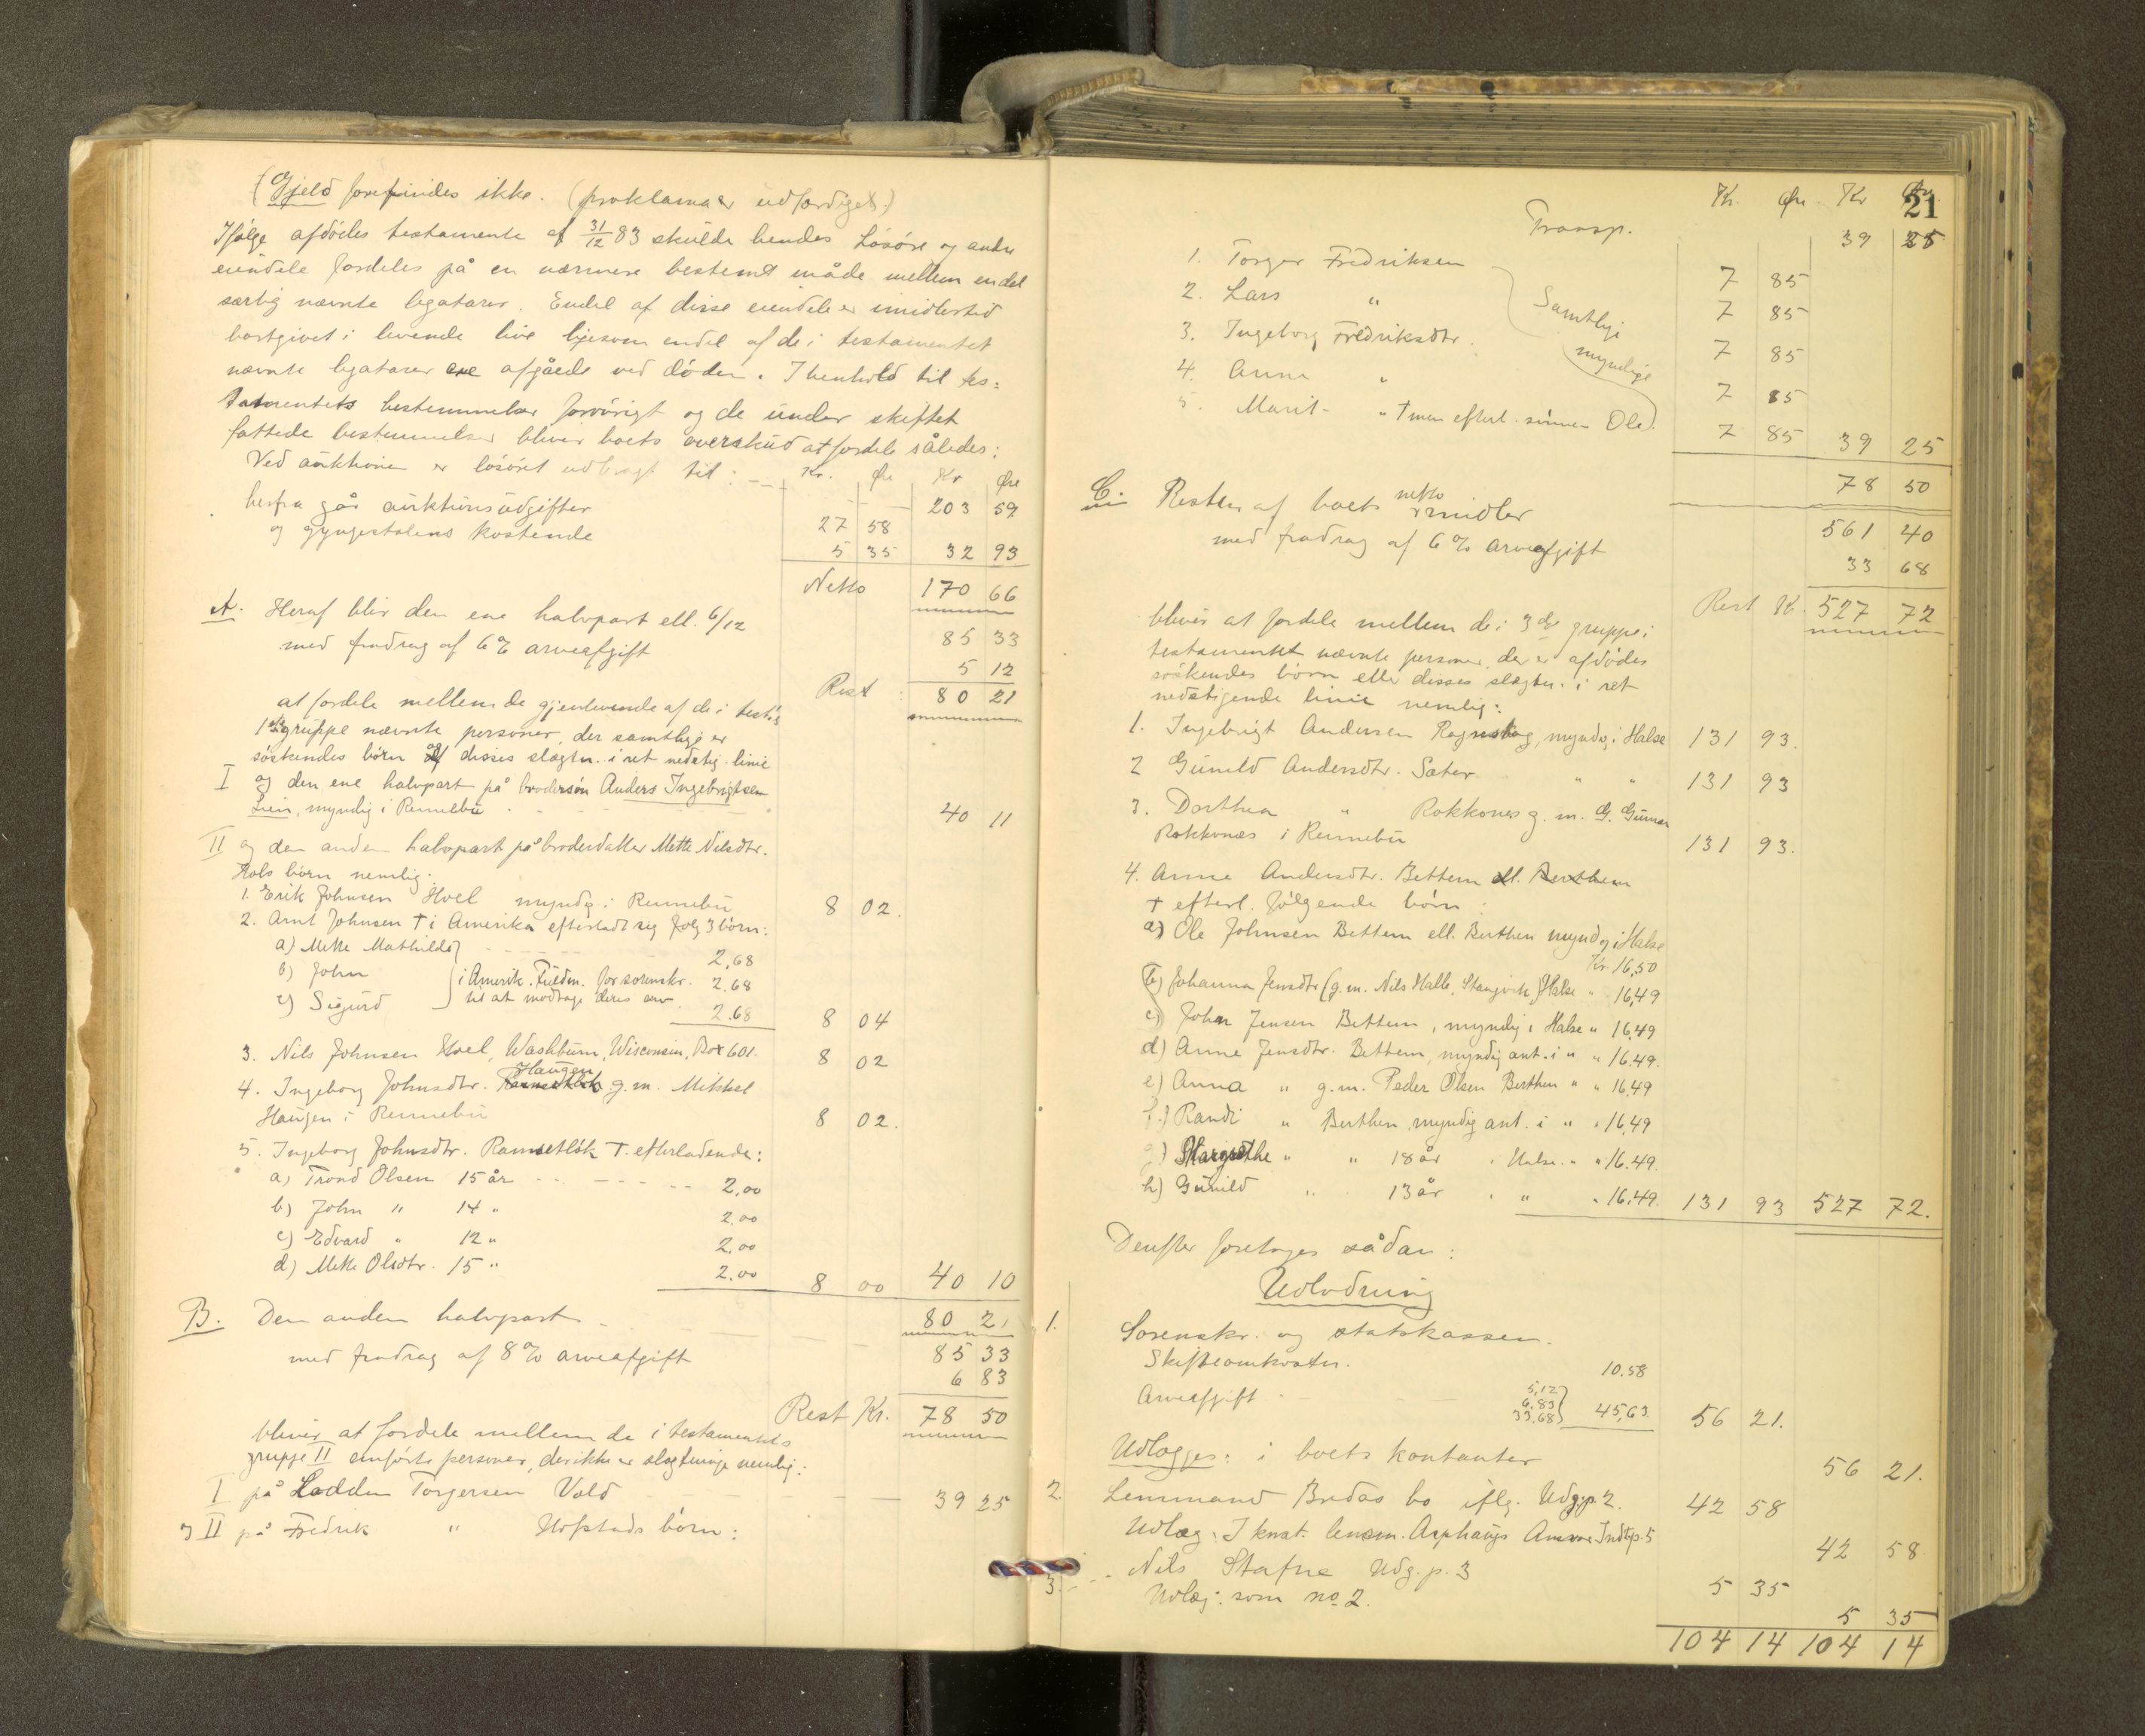 (Gjeld forefindes ikke. (proklama er udfærdiget.)
Ifølge afdødes testamente af 31/12 83 skulde hendes løsøre og andre
eiendele fordeles på en nærmere bestemt måde mellem endel
særlig nævnte legatarer. Endel af disse eiendele er imidlertid
bortgivet i levende live ligesom endel af de i testamentet
nævnte legatarer ere afgåede ved døden. I henhold til tes=
tamentets bestemmelser forøvrigt og de under skiftet
fattede bestemmelser bliver boets overskud at fordele således:
Ved auktionen er løsøret udbragt til: Kr. Øre Kr Øre
203 59
herfra går auktionsudgifter 27 58
og gyngestolens kostende 5 35 32 93
Netto 170 66
A. Heraf blir den ene halvpart ell. 6/12 85 33
med fradrag af 6% arveafgift 5 12
Rest 80 21
at fordele mellem de gjenlevende af de i test's
1ste gruppe nævnte personer, der samtlige er
søskendes børn og disses slægtn. i ret nedstig. linie
I og den ene halvpart på brodersøn Anders Ingebrigtsen
Lien, myndig i Rennebu 40 11
II og den anden halvpart på broderdatter Mette Nilsdtr.
Hols børn nemlig:
1. Erik Johnsen Hoel myndig i Rennebu 8 02.
2. Arnt Johnsen † i Amerika efterladt sig følg 3 børn:
a) Mette Mathilde 2,68
b) John i Amerik. Fuldm. for sorenskr. 2.68
c) Sigurd til at modtage deres arv. 2.68 8 04
3. Nils Johnsen Hoel, Washburn, Wisconsin, Box 601. 8 02
Haugen
4. Ingeborg Johnsdtr. Ramsetløk g.m. Mikkel
Haugen i Rennebu 8 02.
5. Ingeborg Johnsdtr. Ramsetløk † efterladende:
a) Trond Olsen 15 år 2,00
b) John " 14 " 2.00
c) Edvard " 12 " 2.00
d) Mette Olsdtr. 15 " 2.00 8 00 40 10
80 21
B. Den anden halvpart 85 33
med fradrag af 8% arveafgift 6 83
Rest Kr. 78 50
bliver at fordele mellem de i testamentets
gruppe II anførte personer, der ikke er slægtninge nemlig:
I på Lodden Torgersen Vold 39 25
og II på Fredrik " Hofstads børn:
21
Kr. Øre. Kr
Transp. 39 25
1. Torger Fredriksen 7 85
2. Lars " 7 85
3. Ingeborg Fredriksdtr. 7 85
4. Anne " 7 85
5. Marit " † men efterl. sønnen Ole. 7 85 39 25
Samtlige
myndige
78 50
C. Resten af boets netto midler 561 40
med fradrag af 6% arveafgift 33 68
Rest K. 527 72
bliver at fordele mellem de i 3de gruppe i
testamentet nævnte personer, der er afdødes
søskendes børn eller disses slægtn. i ret
nedstigende linie nemlig:
1. Ingebrigt Andersen Rognskog, myndig i Halse 131 93.
2 Gunild Andersdtr. Sæter " " 131 93
3. Dorthea " Rokkones g. m. G. Gunnar
Rokkonæs i Rennebu 131 93.
4. Anne Andersdtr. Bettem ell. Berthem
† efterl. følgende børn:
a) Ole Johnsen Bettem ell. Berthen myndig i Halse
Kr. 16,50
b) Johanna Jensdtr (g.m. Nils Halle, Stangvik) Halse " 16,49
c) Johan Jensen Bettem, myndig i Halse " 16,49
d) Anne Jensdtr. Bettem, myndig ant. i " " 16,49.
e) Anna " g.m. Peder Olsen Berthen " " 16,49
f.) Randi " Berthen, myndig ant. i " " 16,49
g) Margrethe " " 18 år " Halse " " 16.49.
h) Gunild " 13 år " " " 16.49. 131 93 527 72.
Derefter foretages sådan:
Udlodning
1. Sorenskr. og statskassen.
Skifteomkostn. 10.58
Arveafgift 5,12 6,83 33,68 45,63. 56 21.
Udlægges: i boets kontanter 56 21.
2. Lensmand Bredas bo iflg. Udg.p. 2. 42 58
Udlæg: I knat. lensm. Asphaugs Ansvar Indtp. 5 42 58.
3. Nils Stafne Udg. p. 3 5 35
Udlæg: som no. 2. 5 35
104 14 104 14